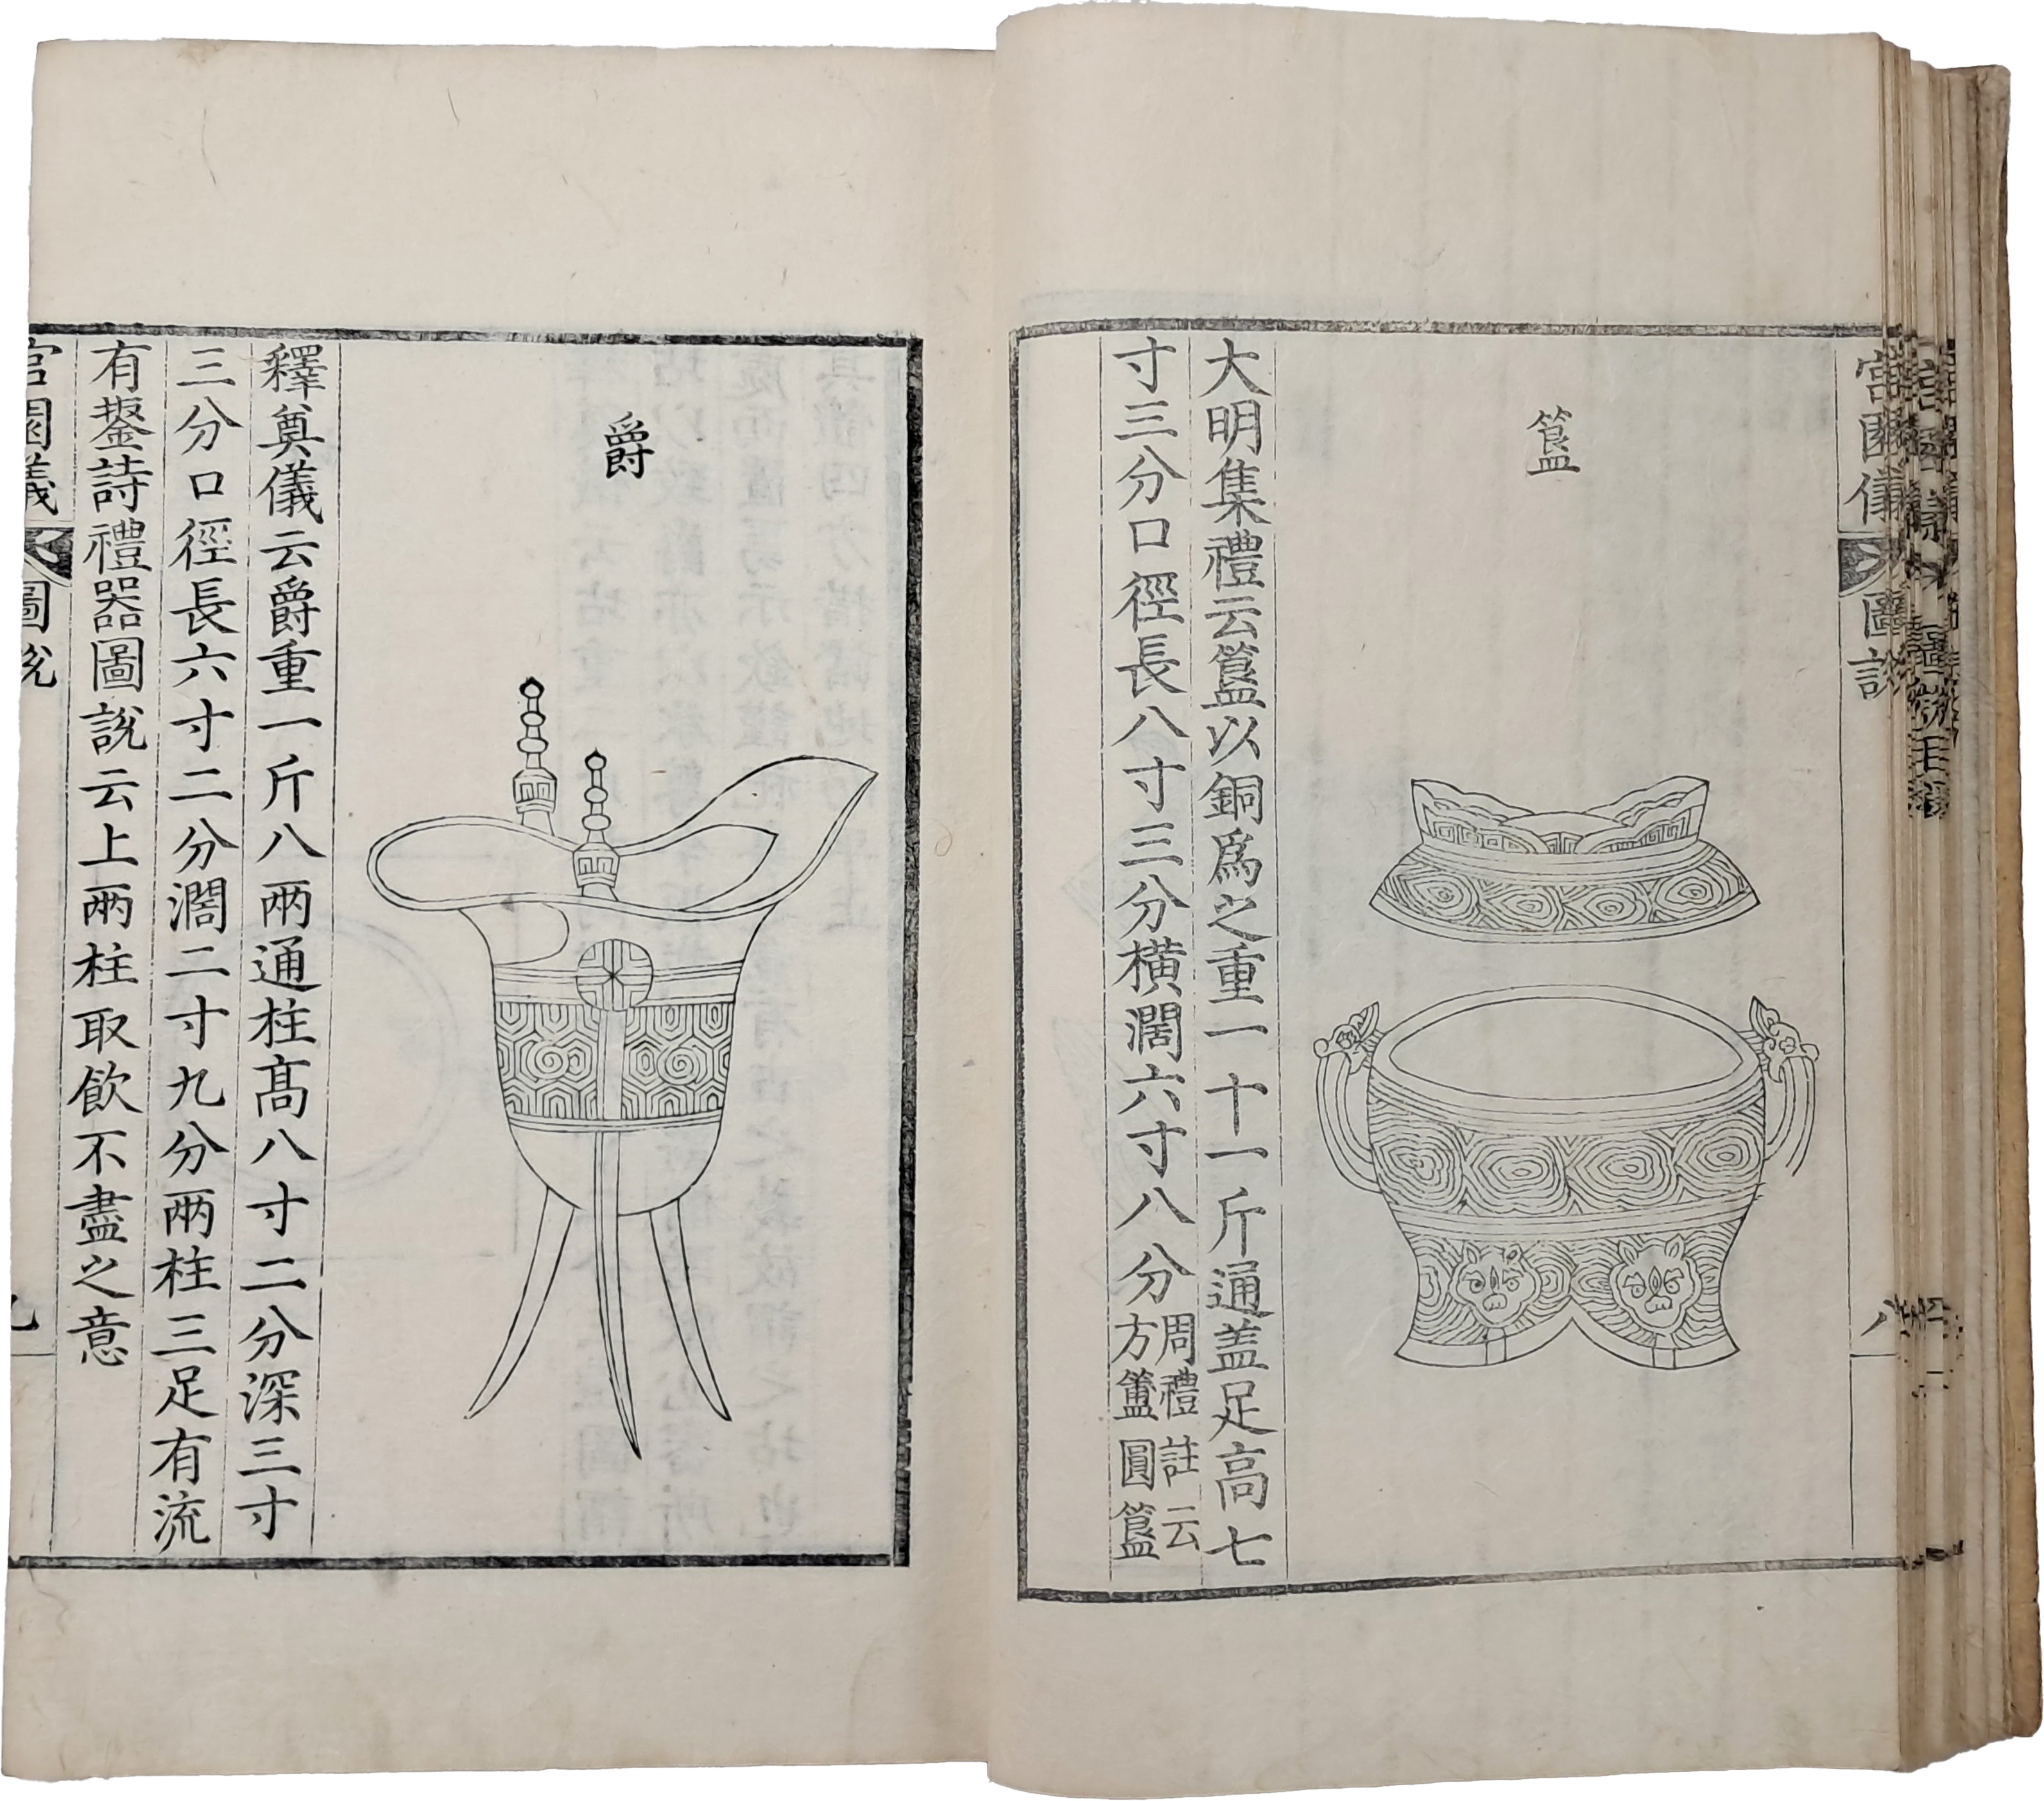 宮園儀 圖說
八
簋
大明集禮云簋以銅爲之重一十一斤通盖足高七
寸三分口徑長八寸三分横濶六寸八分
周禮註云
方簠圓簋
爵
釋奠儀云爵重一斤八兩通柱髙八寸二分深三寸
三分口徑長六寸二分濶二寸九分兩柱三足有流
有鋬詩禮器圖說云上兩柱取飲不盡之意